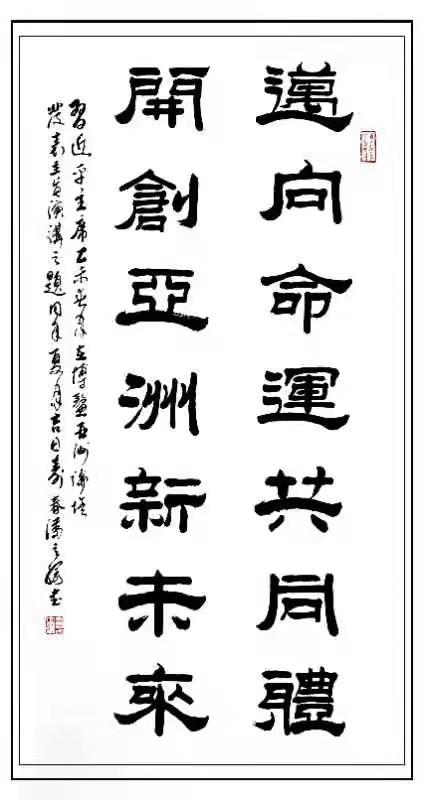 邁向命運共同體
開創亞洲新未來
習近平主席乙未在博鰲亞洲論壇
發表主旨演講之題同年夏月吉日壽春潘之書